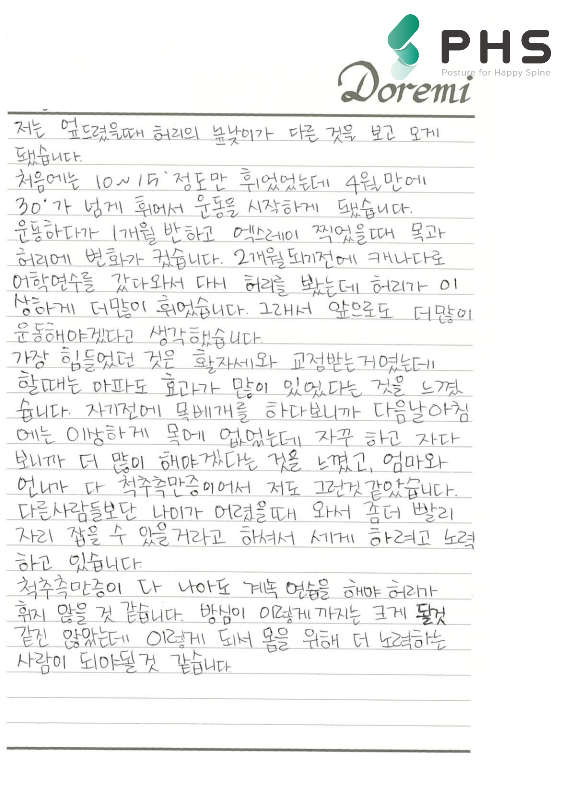 PHS
Posture for Happy Spine
Doremi
저는 엎드렸을때 허리의 높낮이가 다른 것을 보고 오게
됐습니다.
처음에는 10~15°정도만 휘었었는데 4월만에
30°가 넘게 휘어서 운동을 시작하게 됐습니다.
운동하다가 1개월 반하고 엑스레이 찍었을때 목과
허리에 변화가 커습니다. 2개월되기전에 캐나다로
어학연수를 갔다와서 다시 허리를 봤는데 허리가 이
상하게 더많이 휘었습니다. 그래서 앞으로도 더많이
운동해야겠다고 생각했습니다.
가장 힘들었던 것은 활자세와 교정받는거였는데
할때는 아파도 효과가 많이 있었다는 것을 느꼈
습니다. 자기전에 목베개를 하다보니까 다음날아침
에는 이상하게 목에 없었는데 자꾸 하고 자다
보니까 더 많이 해야겠다는 것을 느꼈고, 엄마와
언니가 다 척추측만증이어서 저도 그런것같았습니다.
다른사람들보단 나이가 어렸을때 와서 좀더 빨리
자리 잡을 수 있을거라고 하셔서 세게 하려고 노력
하고 있습니다.
척추측만증이 다 나아도 계속 연습을 해야 허리가
휘지 않을 것 같습니다. 방심이 이렇게까지는 크게 될것
같진 않았는데 이렇게 되서 몸을 위해 더 노력하는
사람이 되야될것 같습니다.